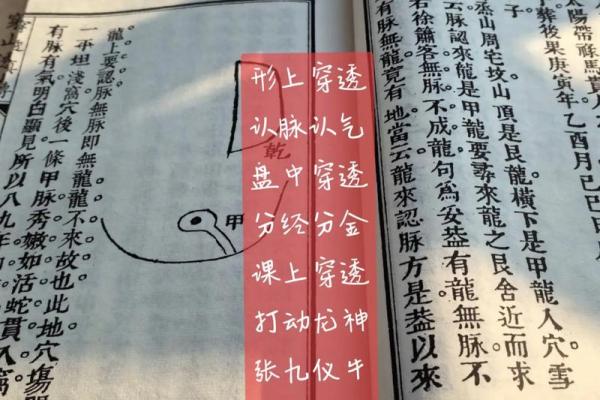 太陽帶祿馬貴人
葬後果庚寅年乙酉月己巳
子。
山周宅坟山頂是艮龍。橫下是甲龍入穴。雪
云脉認來龍是甲龍。要尋來龍之艮。舍近而求
若徐籥客無脉不成龍句爲妄。葢有龍無脉。不
有脉無龍。竟有地。當云龍來認脉方是。葢以來
形上穿透
认脉认气
盘中穿透
分经分金
课上穿透
打动龙神
张九仪牛
乾
甲
龍上要認脉。無脉即無龍。龍不來故也。此地穴傷
一平坦淺窩穴後一條甲脉秀嫩如活蛇貫入窩
有脉有氣明白顯見。所以八九年